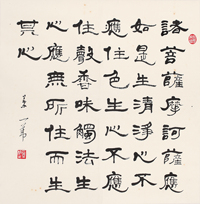 諸菩薩摩訶薩應
如是生清淨心不
應住色生心不應
住聲香味觸法生
心應無所住而生
其心